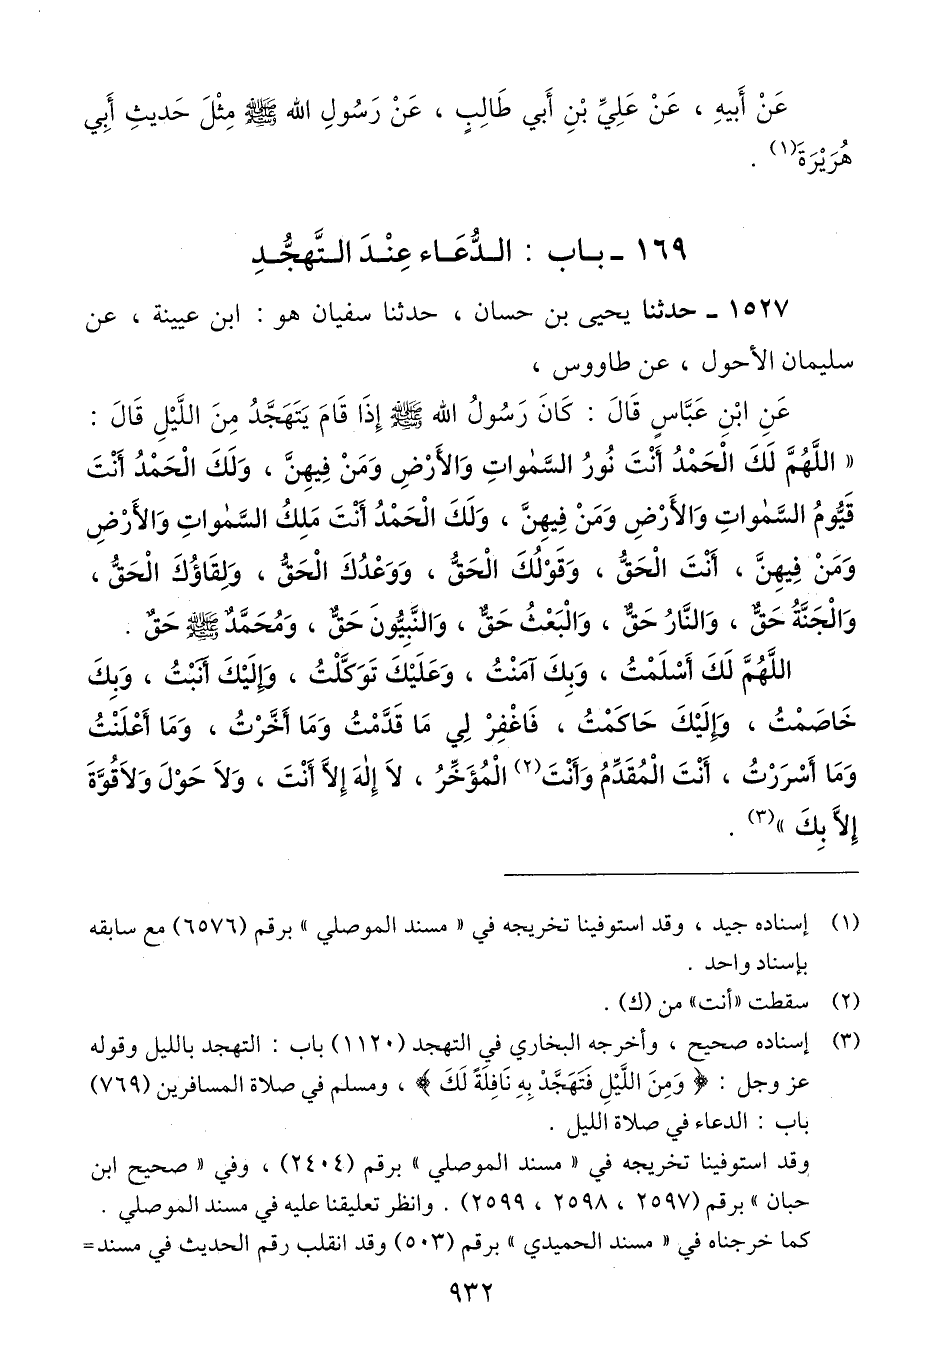 عَنْ أَبيهِ ، عَنْ عَلِيِّ بْنِ أَبي طَالِبٍ ، عَنْ رَسُولِ الله ﷺ مِثْلَ حَديثِ أَبِي
هُرَيْرَةَ(١) .
١٦٩ ـ بـاب : الـدُّعَـاء عِنْـدَ الـتَّهجُّـدِ
١٥٢٧ ـ حدثنا يحيى بن حسان ، حدثنا سفيان هو : ابن عيينة ، عن
سليمان الأحول ، عن طاووس ،
عَنِ ابْنِ عَبَّاسٍ قَالَ : كَانَ رَسُولُ الله ﷺ إِذَا قَامَ يَتَهَجَّدُ مِنَ اللَّيْلِ قَالَ :
« اللَّهُمَّ لَكَ الْحَمْدُ أَنْتَ نُورُ السَّمٰواتِ وَالأَرْضِ وَمَنْ فِيهِنَّ ، وَلَكَ الْحَمْدُ أَنْتَ
قَيُّومُ السَّمٰواتِ وَالأَرْضِ وَمَنْ فِيهِنَّ ، وَلَكَ الْحَمْدُ أَنْتَ مَلِكُ السَّمٰواتِ وَالأَرْضِ
وَمَنْ فِيهِنَّ ، أَنْتَ الْحَقُّ ، وَقَوْلُكَ الْحَقُّ ، وَوَعْدُكَ الْحَقُّ ، وَلِقَاؤُكَ الْحَقُّ ،
وَالْجَنَّةُ حَقٌّ ، وَالنَّارُ حَقٌّ ، وَالْبَعْثُ حَقٌّ ، وَالنَّبِيُّونَ حَقٌّ ، وَمُحَمَّدٌ ﷺ حَقٌ .
اللَّهُمَّ لَكَ أَسْلَمْتُ ، وَبِكَ آمَنْتُ ، وَعَلَيْكَ تَوَكَّلْتُ ، وَإِلَيْكَ أَنَبْتُ ، وَبِكَ
خَاصَمْتُ ، وَإِلَيْكَ حَاكَمْتُ ، فَاغْفِرْ لِي مَا قَدَّمْتُ وَمَا أَخَّرْتُ ، وَمَا أَعْلَنْتُ
وَمَا أَسْرَرْتُ ، أَنْتَ الْمُقَدِّمُ وَأَنْتَ(٢) الْمُؤَخِّرُ ، لاَ إِلٰهَ إِلاَّ أَنْتَ ، وَلاَ حَوْلَ وَلاَقُوَّةَ
إِلاَّ بِكَ »(٣) .
(١) إسناده جيد ، وقد استوفينا تخريجه في « مسند الموصلي » برقم (٦٥٧٦) مع سابقه
بإسناد واحد .
(٢) سقطت «أنت» من (ك) .
(٣) إسناده صحيح ، وأخرجه البخاري في التهجد (١١٢٠) باب : التهجد بالليل وقوله
عز وجل : ﴿ وَمِنَ اللَّيْلِ فَتَهَجَّدْ بِهِ نَافِلَةً لَكَ ﴾ ، ومسلم في صلاة المسافرين (٧٦٩)
باب : الدعاء في صلاة الليل .
وقد استوفينا تخريجه في « مسند الموصلي » برقم (٢٤٠٤) ، وفي « صحيح ابن
حبان » برقم (٢٥٩٧ ، ٢٥٩٨ ، ٢٥٩٩) . وانظر تعليقنا عليه في مسند الموصلي .
كما خرجناه في « مسند الحميدي » برقم (٥٠٣) وقد انقلب رقم الحديث في مسند=
٩٣٢